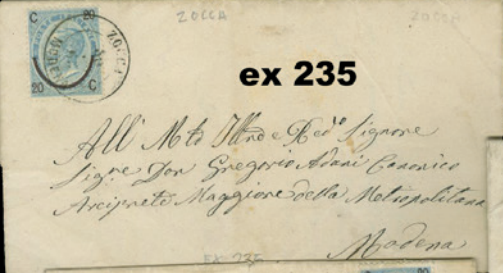 ZOCCA ZOCCA
C 20
ZOCCA
20 C
ex 235
All' Mto Illre e Redo Signore
Sigre Don Gregorio Adani Canonico
Arciprete Maggiore della Metropolitana
Modena
EX 235
20